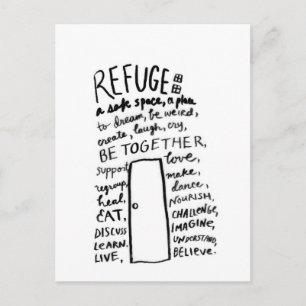 REFUGE:
a safe space, a place
to dream, be weird,
create, laugh, cry,
BE TOGETHER,
support love,
regroup, make,
heal, dance,
EAT, NOURISH,
DISCUSS CHALLENGE,
LEARN. IMAGINE,
LIVE, UNDERSTAND,
BELIEVE.